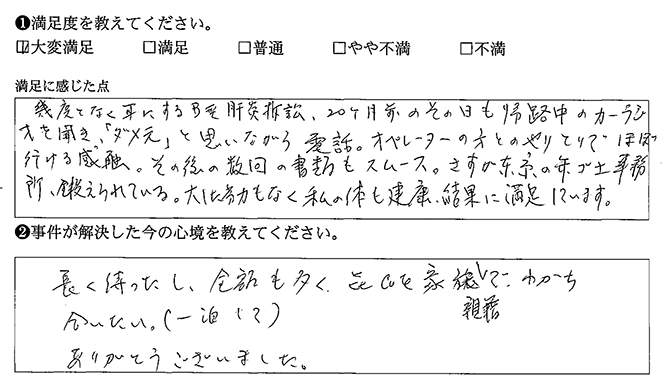 ❶満足度を教えてください。
☑大変満足 □満足 □普通 □やや不満 □不満
満足に感じた点
幾度となく耳にするB型肝炎訴訟、20ヶ月前のその日も帰路中のカーラジ
オを聞き、「ダメ元」と思いながら電話。オペレーターの方とのやりとりでほぼ
行ける感触。その後の数回の書類もスムース。さすが東京の弁ゴ士事務
所、鍛えられている。大した労力もなく私の体も健康、結果に満足しています。
❷事件が解決した今の心境を教えてください。
長く待ったし、金額も多く、家族 親籍でわかち
合いたい。(一泊して)
ありがとうございました。